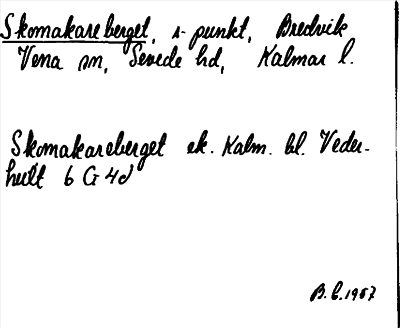 Skomakareberget, s-punkt, Bredvik
Vena sn, Sevede hd, Kalmar l.
Skomakareberget ek. Kalm. bl. Veder-
hult 6 G 4d
B.E. 1967